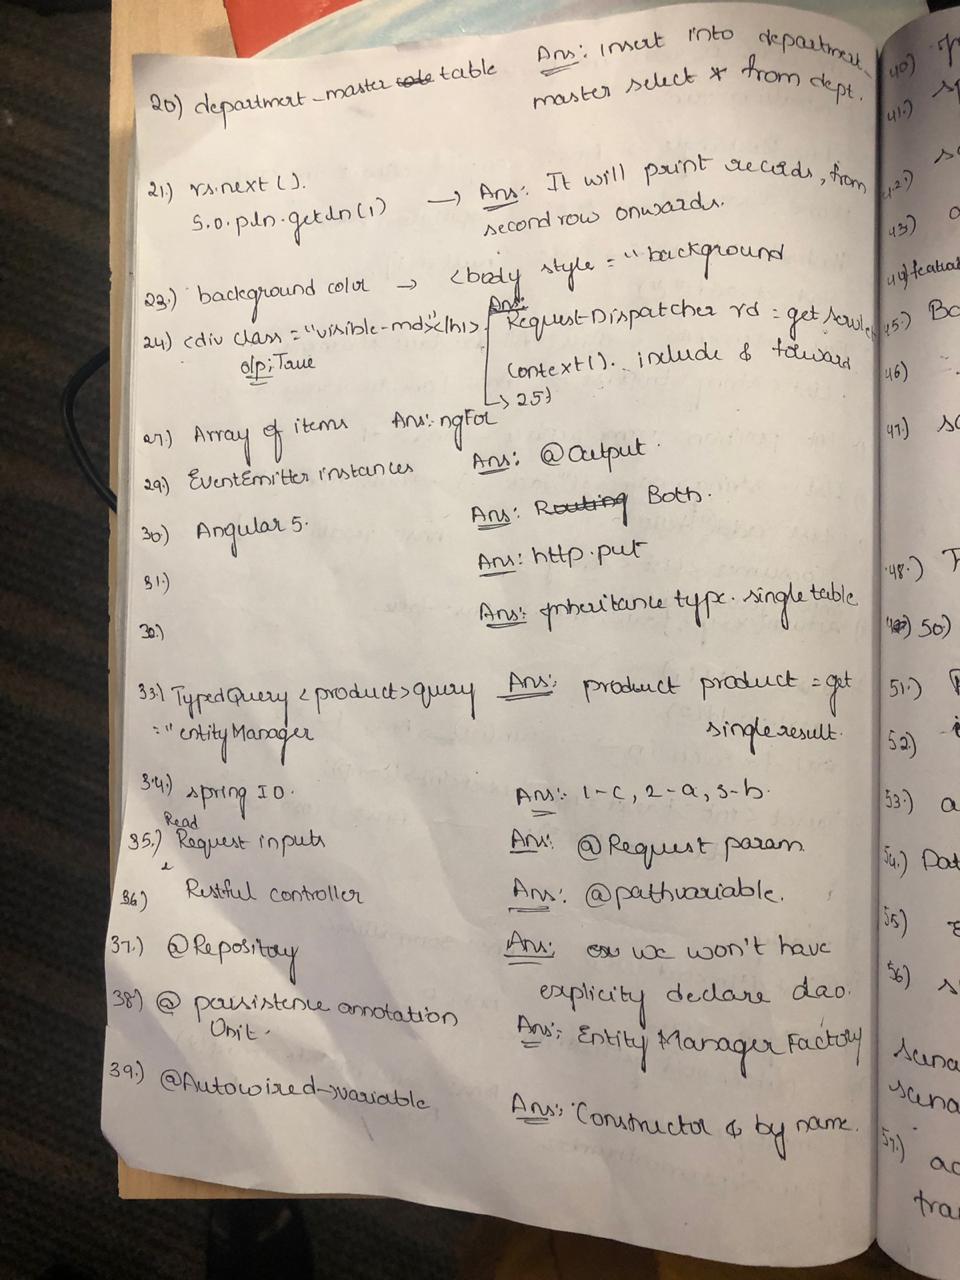 20) department-master table Ans: insert into department-
master select * from dept.
21.) rs.next().
S.o.pln.getln(1) → Ans: It will print records, from
second row onwards.
23.) background color → <body style = "background
24.) <div class = "visible-md"><h1> Ans: RequestDispatcher rd = get servlet
o/p: True context(). include & forward
→ 25)
27.) Array of items Ans: ngFor
29.) EventEmitter instances Ans: @Output
30.) Angular 5. Ans: Routing Both.
31.) Ans: http.put
30.) Ans: Inheritance type. single table
33.) TypedQuery <product> query Ans: product product = get
="entityManager single result.
34.) spring IO. Ans: 1-c, 2-a, 3-b.
Read
35.) Request inputs Ans: @Request param
36) Restful controller Ans: @pathvariable.
37.) @Repository Ans: we won't have
explicity declare dao.
38) @ persistence annotation
Unit. Ans: Entity Manager Factory
39.) @Autowired→variable
Ans: Constructor & by name.
40)
41.)
42)
43)
44)
45.) Bo
46)
47.)
48.)
50)
51.)
52)
53.) a
54.) Dat
55)
56)
scena
scena
57.) ac
tra